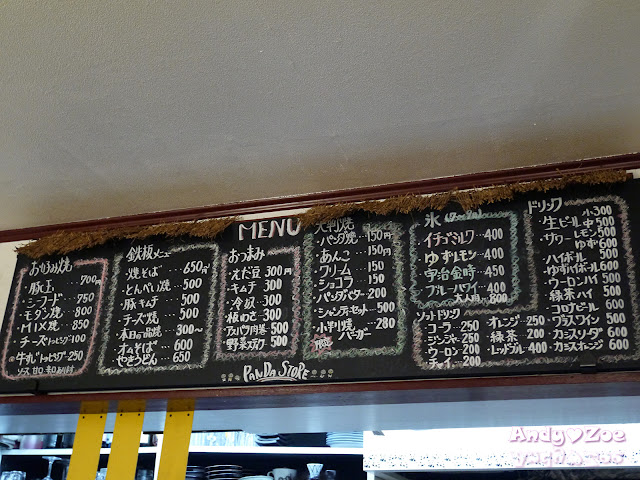 MENU
お好み焼
豚玉 … 700円
・シーフード … 750
・モダン焼 … 800
・MIX焼 … 850
・チーズトッピング 100
牛すじトッピング 250
ソース 甘口・辛口あります
鉄板メニュー
・焼そば … 650円
・とんぺい焼 … 500
・豚キムチ … 500
・チーズ焼 … 500
・本日の一品焼 … 300〜
・オムそば … 600
・やきうどん … 650
おつまみ
・えだ豆 300円
・キムチ … 300
・冷奴 … 300
500
・野菜スティック 500
大判焼
・パンダ焼 … 150円
・あんこ … 150円
・クリーム … 150
・ショコラ … 150
・パンダバター … 200
・シャンテセット … 500
・小判焼 … 280
バーガー
氷
・イチゴミルク … 400
・ゆずレモン … 400
・宇治金時 … 450
・ブルーハワイ … 400
ソフトドリンク
・コーラ … 250
・ジンジャー … 250
・ウーロン … 200
・チャイ … 200
・オレンジ … 250
・緑茶 … 200
・レッドブル … 400
ドリンク
・生ビール 小300
中500
・サワー レモン 500
ゆず 600
・ハイボール 500
・ゆずハイボール 600
・ウーロンハイ 500
・緑茶ハイ 500
・コロナビール 600
・グラスワイン 500
・カシスソーダ 500
・カシスオレンジ 600
PANDA STORE
Andy♥Zoe